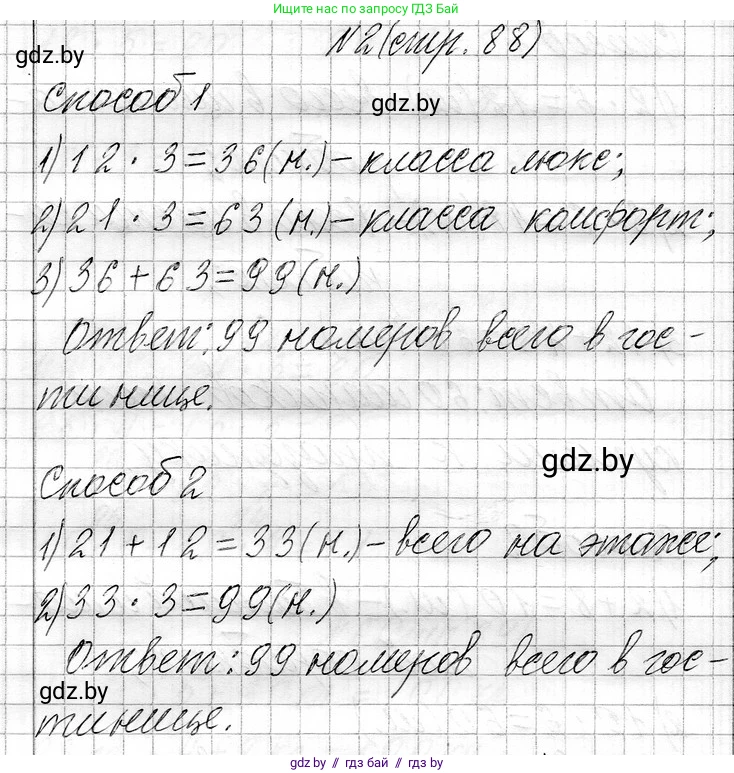 Ищите нас по запросу ГДЗ Бай
gdz.by
N2(стр. 88)
Способ 1
gdz.by
1) 12 · 3 = 36 (н.) – класса люкс;
2) 21 · 3 = 63 (н.) – класса комфорт;
3) 36 + 63 = 99 (н.)
Ответ: 99 номеров всего в гос-
тинице.
gdz.by
Способ 2
1) 21 + 12 = 33 (н.) – всего на этаже;
2) 33 · 3 = 99 (н.)
Ответ: 99 номеров всего в гос-
gdz.by
тинице.
gdz.by // гдз бай // gdz.by